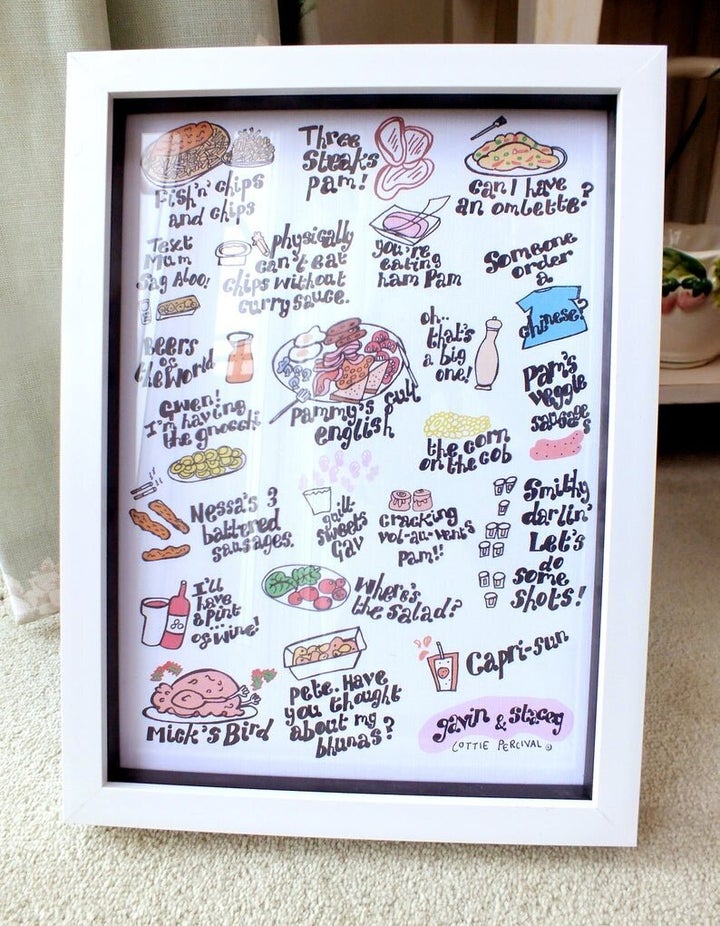 Fish'n' chips
and chips
Three
Steaks
pam!
can I have
an omlette?
Text
Mum
Sag Aloo!
physically
can't eat
chips without
curry sauce.
you're
eating
ham Pam
Someone
order
a
chinese?
Beers
of
the World
oh..
that's
a big
one!
Gwen!
I'm having
the gnocchi
Pammy's full
english
Pam's
Veggie
sausages
the corn
on the cob
Nessa's 3
battered
sausages.
guilt
sweets
Gav
cracking
vol-au-vents
Pam!!
Smithy
darlin'
Let's
do
some
shots!
I'll
have
a pint
of...
wine!
Where's
the salad?
Mick's Bird
Pete. Have
you thought
about my
bhunas?
Capri-sun
gavin & stacey
LOTTIE PERCIVAL ©